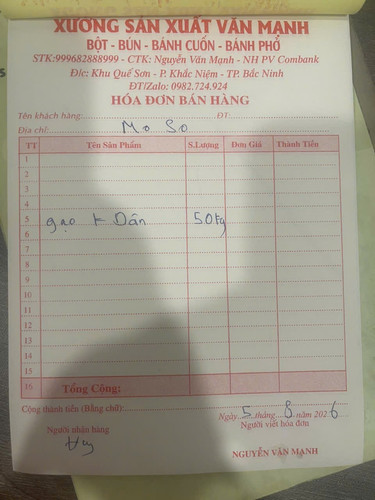 XƯỞNG SẢN XUẤT VĂN MẠNH
BỘT - BÚN - BÁNH CUỐN - BÁNH PHỞ
STK:999682888999 - CTK: Nguyễn Văn Mạnh - NH PV Combank
Đ/c: Khu Quế Sơn - P. Khắc Niệm - TP. Bắc Ninh
ĐT/Zalo: 0982.724.924
HÓA ĐƠN BÁN HÀNG
Tên khách hàng: ĐT:
Địa chỉ: Mo So
TT Tên Sản Phẩm S.Lượng Đơn Giá Thành Tiền
1
2
3
4
5 gạo K Dân 50kg
6
7
8
9
10
11
12
13
14
15
16 Tổng Cộng:
Cộng thành tiền (Bằng chữ):
Ngày 5 tháng 8 năm 2026
Người nhận hàng Người viết hóa đơn
NGUYỄN VĂN MẠNH